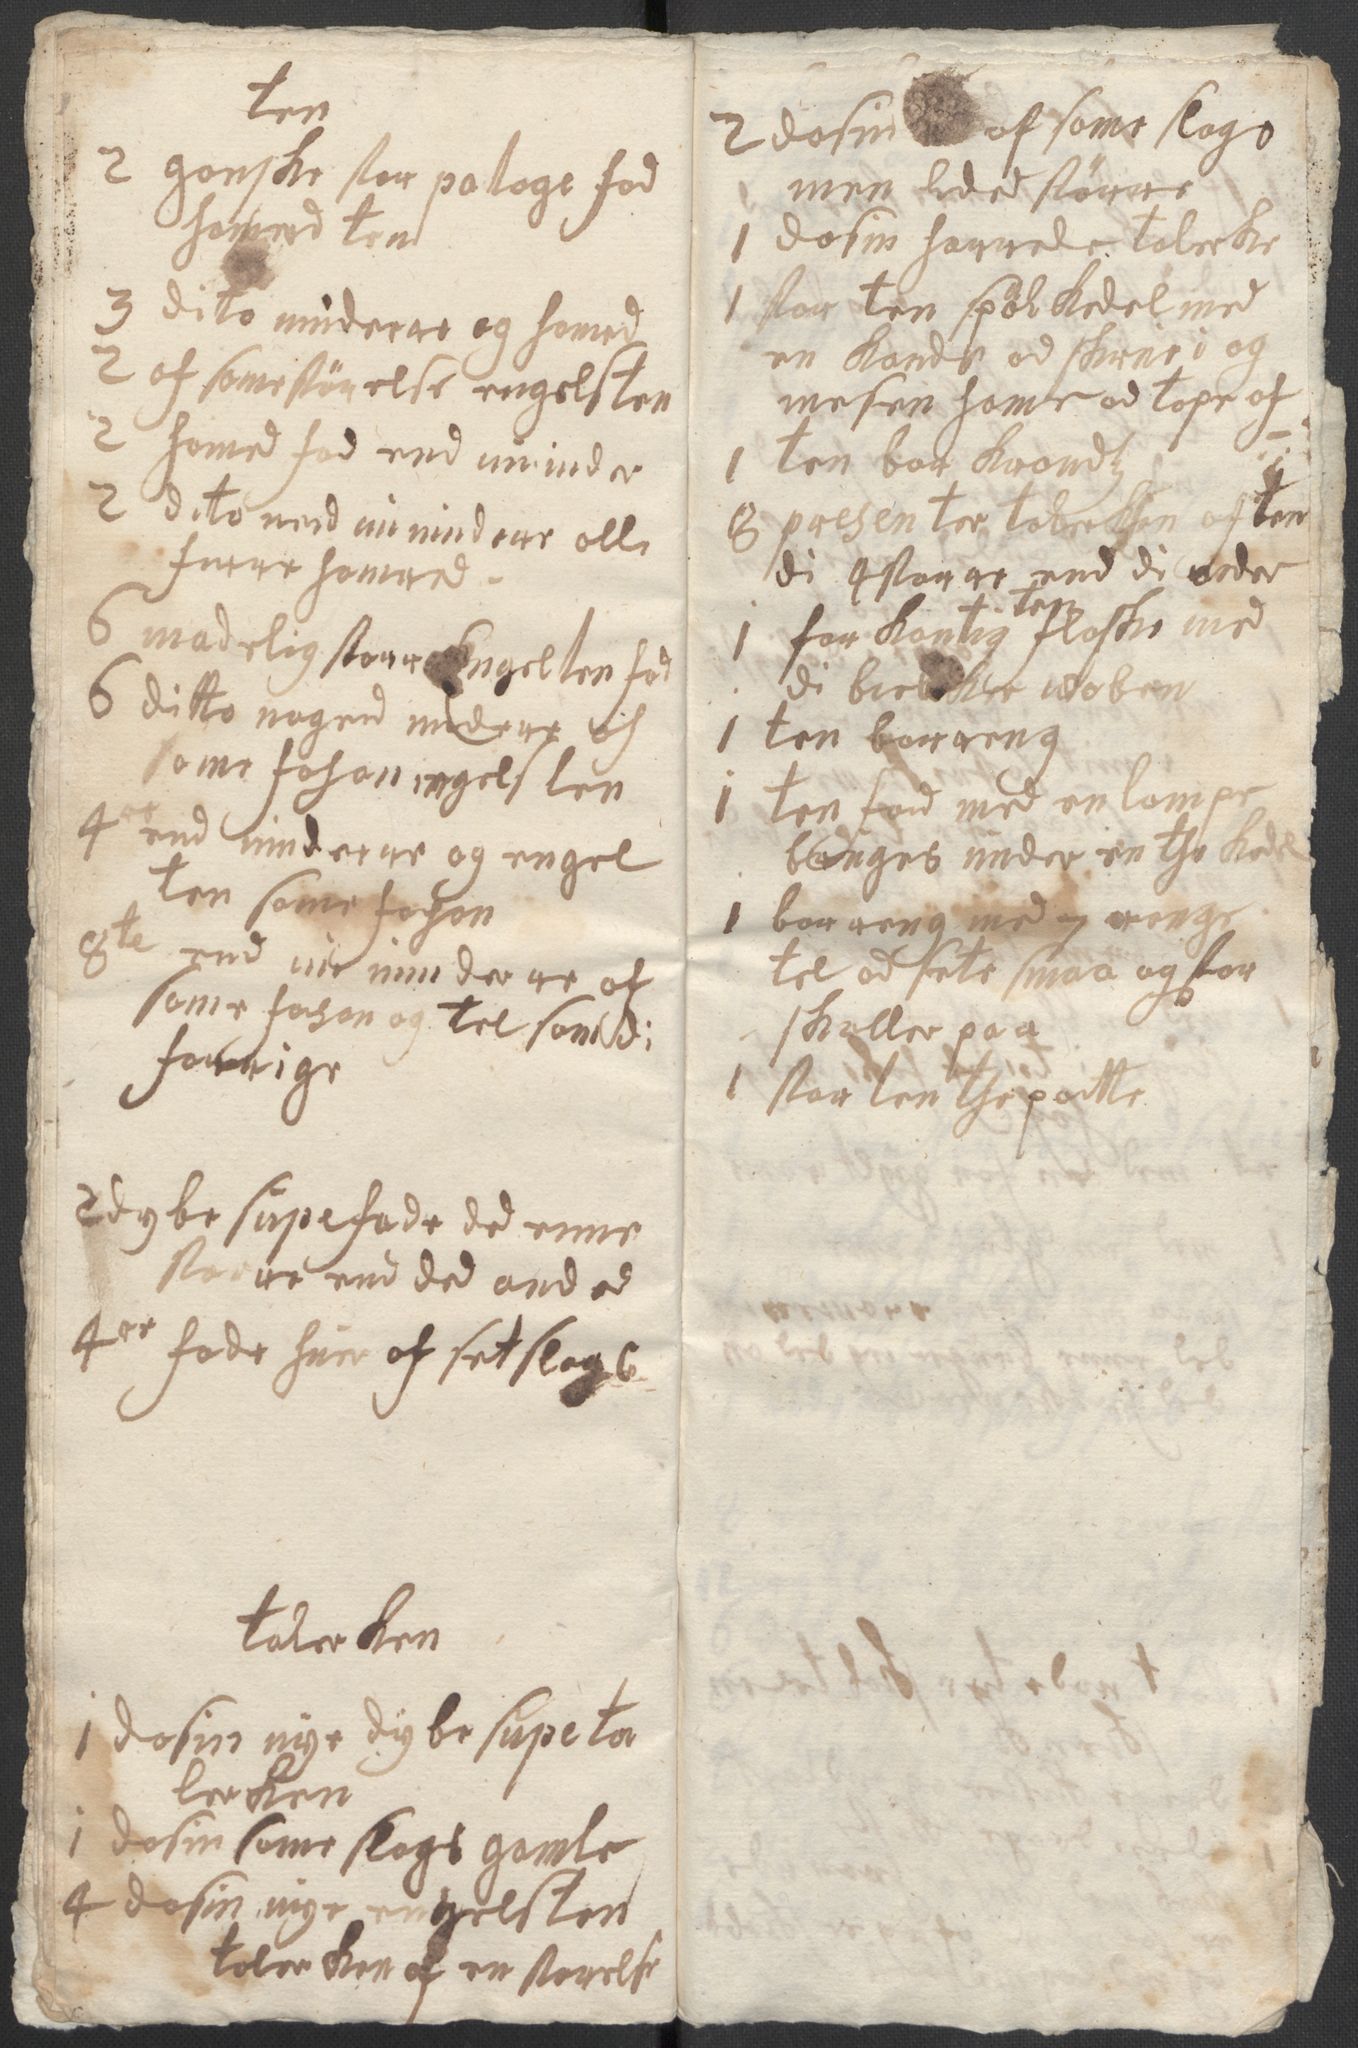 ten
2 ganske stor potage fad
hamred ten
3 dito minderre og hamred
2 af same størrelse engelsten
2 hamed fad end minder
2 dito end minderre alle
fierre hamred
6 madelig storre Engel ten fad
6 ditto noged mindere af
same fahson engels ten
4er end minderre og engel
ten same fahson
8te end minderre af
same fahson og tel som di
forrige
2 dybe supe fade ded enne
storre end ded anded
4er fade huer af set slags
talerken
1 dosin nye dybe supe ta
lerken
1 dosin same slags gamle
4 dosin nye engelsten
talerken af en storelse
2 dosin af same slags
men lided størrre
1 dosin harrede talerke
1 stor ten spöl kedel med
en Kande ad skrue i og
mesen hane ad tape af
1 ten bor krandtz
8 presenter talerken af ten
di 4 storre end di ander
1 for kantig ten flaske med
di bielcker woben
1 ten borreng
1 ten fad med en lampe
bruges under en the kedel
1 borreng med 7 renge
tel ad sete smaa og stor
skaller paa
1 stor ten the potte